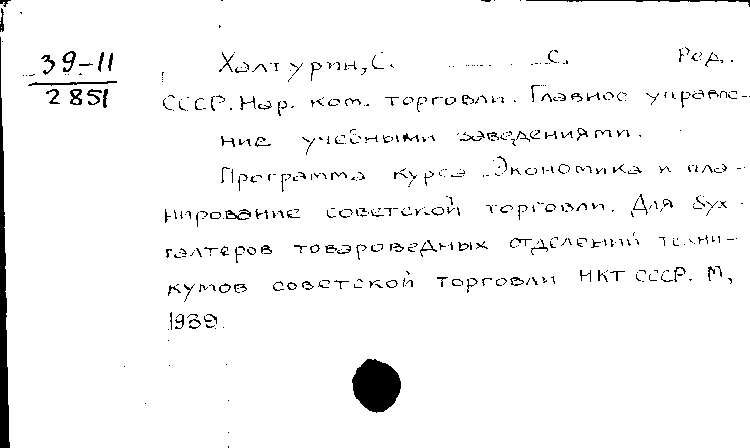 39-11
2851
Халтурин, С. С. Ред.
СССР. Нар. ком. торговли. Главное управле-
ние учебными заведениями.
Программа курса Экономика и пла-
нирование советской торговли. Для бух-
галтеров товароведных отделений техни-
кумов советской торговли НКТ СССР. М,
1939.